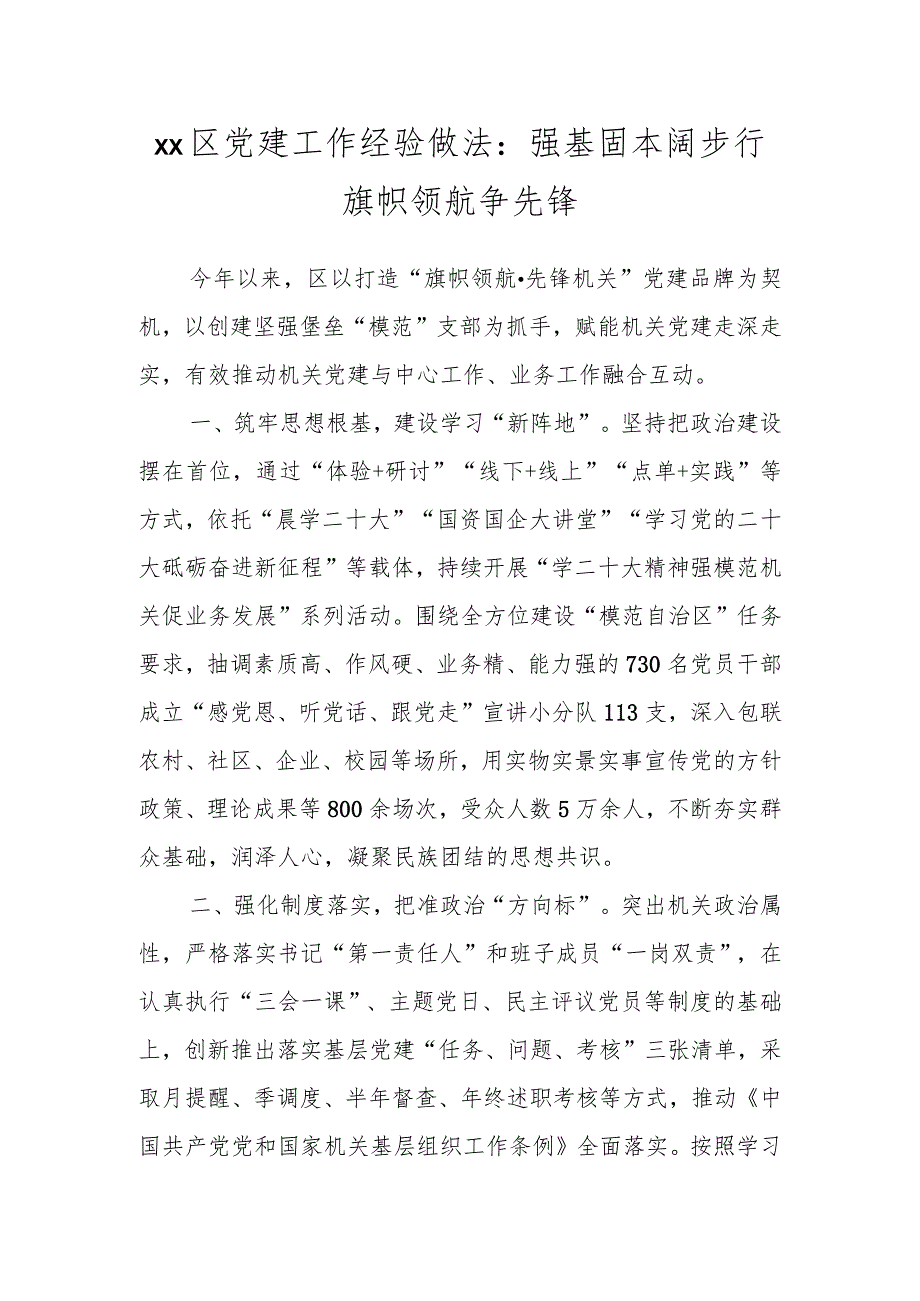 xx区党建工作经验做法：强基固本阔步行
旗帜领航争先锋
今年以来，区以打造“旗帜领航•先锋机关”党建品牌为契
机，以创建坚强堡垒“模范”支部为抓手，赋能机关党建走深走
实，有效推动机关党建与中心工作、业务工作融合互动。
一、筑牢思想根基，建设学习“新阵地”。坚持把政治建设
摆在首位，通过“体验+研讨”“线下+线上”“点单+实践”等
方式，依托“晨学二十大”“国资国企大讲堂”“学习党的二十
大砥砺奋进新征程”等载体，持续开展“学二十大精神强模范机
关促业务发展”系列活动。围绕全方位建设“模范自治区”任务
要求，抽调素质高、作风硬、业务精、能力强的730名党员干部
成立“感党恩、听党话、跟党走”宣讲小分队113支，深入包联
农村、社区、企业、校园等场所，用实物实景实事宣传党的方针
政策、理论成果等800余场次，受众人数5万余人，不断夯实群
众基础，润泽人心，凝聚民族团结的思想共识。
二、强化制度落实，把准政治“方向标”。突出机关政治属
性，严格落实书记“第一责任人”和班子成员“一岗双责”，在
认真执行“三会一课”、主题党日、民主评议党员等制度的基础
上，创新推出落实基层党建“任务、问题、考核”三张清单，采
取月提醒、季调度、半年督查、年终述职考核等方式，推动《中
国共产党党和国家机关基层组织工作条例》全面落实。按照学习